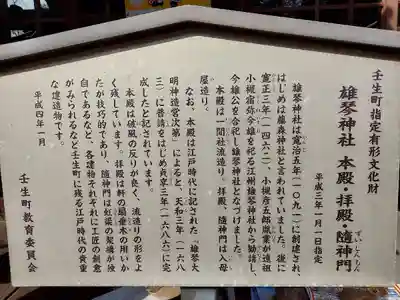 壬生町指定有形文化財
雄琴神社 本殿・拝殿・隨神門
ずいしんもん
平成三年一月一日指定
雄琴神社は寛治五年(一〇九一)に創建され、
はじめは藤森神社と言われていました。後に
寛正三年(一四六二)、小槻彦五郎胤業が遠祖
小槻宿弥今雄を祀る江州雄琴神社から勧請し、
今雄公を合祀し雄琴神社となづけました。
本殿は一間社流造り。拝殿、隨神門は入母
屋造り。
なお、本殿は江戸時代に記された「雄琴大
明神造営次第」によると、天和三年(一六八
三)に普請をはじめ貞享三年(一六八六)に完
成したと記されています。
本殿は破風の反りが良く、流造りの形をよ
く残しています。拝殿は軒の扇垂木の用いか
たが技巧的であり、隨神門は虹梁の架構が独
自であるなど、各建物それぞれに工匠の創意
がみられるなど壬生町に残る江戸時代の貴重
な建造物です。
平成四年一月
壬生町教育委員会